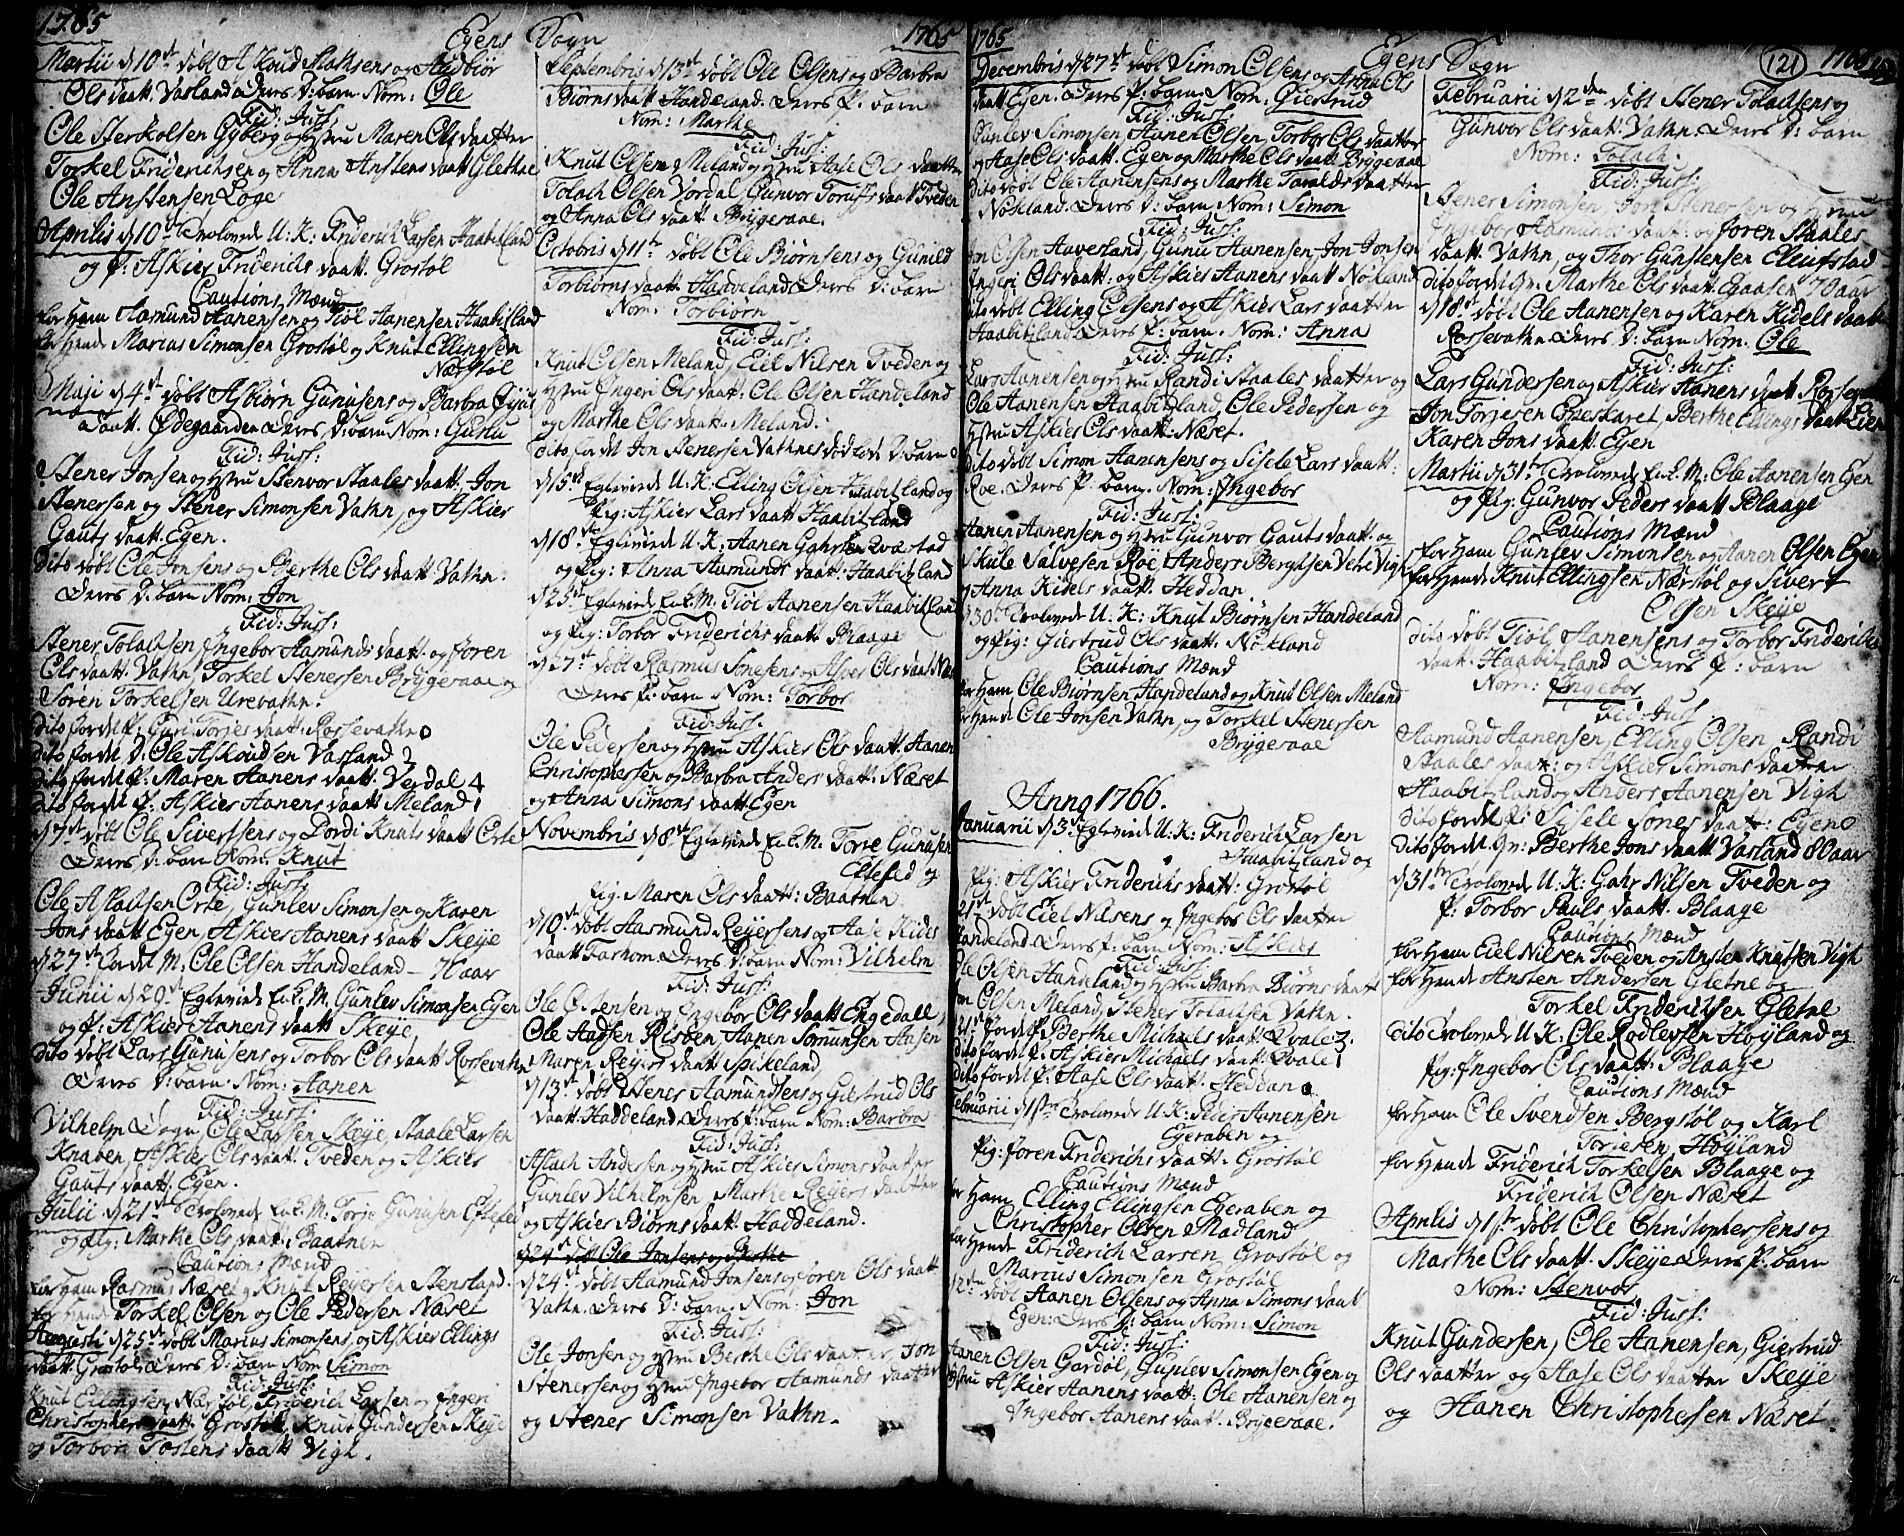 1765 Egens Sogn 1765
Martii d 10de døbt Askoud Mathsens og Audbiør
Ols daatt. Vasland Deres D: barn. Nom: Ole
Fid: Jusf:
Ole Sterkolsen Gyberg og hstru Maren Ols daatter
Torkel Friderichsen og Anna Anstens daatt Glethne
Ole Anstensen Løge
Aprilis d 10de Trolovede U: K: Friderich Larsen Haabitzland
og P: Askier Friderichs daatt. Grostøl
Cautions Mænd
for Ham Aamund Aanensen og Tiøl Aanensen Haabitzland
for Hende Marcus Simonsen Grostøl og Knut Ellingsen
Nærstøl
Maji d 4de døbt Asbiørn Gunusens og Barbra
daatt. Ødegaarden Deres D: barn Nom: Gunu
Fid: Jusf:
Stener Jonsen og hstru Stenvor Staales daatt. Jon
Stenersen og Stener Simonsen Vathn, og Askier
Gauts daatt. Egen.
Dito døbt Ole Jonsens og Berthe Ols daatt. Vathn.
Deres D: barn Nom: Jon
Fid: Jusf:
Stener Tolachsen Ingebor Aamunds daatt. og Joren
Ols daatt. Vathn, Torkel Stenersen Bryggeraae og
Søren Torkelsen Urevathn.
Dito fordt P. Guri Torjes daatt. Rossevathn 0
Dito fordt D. Ole Askoudsen Vasland 3
Dito fordt P. Maren Aanens daatt. Verdal 4
Dito fordt P. Askier Aanens daatt. Meland 1
d 7de døbt Ole Sivertsens og Dordi Knuts daatt. Erte
Deres D: barn Nom. Knut
Fid: Jusf:
Ole Aslachsen Erte, Gunlev Simonsen og Karen
Jons daatt Egen, Askier Aanens daatt Skeije
d 27de fordt M. Ole Olsen Handeland - 7(aar
Junii d 29de Egteviede Enk.M. Gunlev Simonsen Egen
og P: Askier Aanens daatt Skeije
Dito døbt Lars Gunusens og Torbor Ols daatt Rossevathn
Deres D: barn. Nom: Aanen
Fid: Jusf:
Vilhelm Sogn, Ole Larsen Skeije, Staale Larsen
Knaben, Askier Ols daatt. Tveden og Askier
Gauts daatt. Egen.
Julii d 21de Trolovede Enk.M. Torje Gunusen Eftefed
og Pig: Marthe Ols daatt. Baatnen
Cautions Mænd
for Ham Rasmus Næset og Knut Reijersen Stensland.
for Hende Torkel Olsen og Ole Pedersen Næset
Augusti d 25de døbt Marcus Simonsens og Askier Ellings
daatt. Grostøl. Deres D: barn Nom Simon
Fid: Jusf:
Knut Ellingsen Nærstøl, Friderich Larsen og Ingeri
Christophers daatt. Grostøl, Knut Gundersen Skeije
og Torbor Tostens daatt Vigh.
Septembris d 13de døbt Ole Olsens og Barbra
Biørns daatt Handeland. Deres P. barn
Nom: Marthe
Fid: Jusf:
Knut Olsen Meland og hstru Aase Ols daatter
Tolach Olsen Vordal, Gunvor Toruffs daatt Tveden
og Anna Ols daatt. Bryggeraae.
Octobris d 11te døbt Ole Biørnsens og Gunild
Torbiørns daatt. Handeland Deres D: barn
Nom: Torbiørn
Fid: Jusf:
Knut Olsen Meland, Eiel Nilsen Tveden og
hstru Ingeri Ols daatt. Ole Olsen Handeland
og Marthe Ols daatt. Meland.
Dito fordt Jon Stenersen Vathnes dødfødt D: barn 0
d 15de Egteviede U.K. Elling Olsen Haabitzland og
Pig: Askier Lars daatt Haabitzland
d 18de Egteviede U.K: Aanen Gahrsen Qvæstad
og Pig: Anna Aamunds daatt. Haabitzland
d 25de Egteviede Enk.M. Tiøl Aanensen Haabitzland
og Pig: Torbor Friderichs daatt. Blaage
d 27de døbt Rasmus Jonesens og Asber Ols daatt
Deres P: barn. Nom: Torbor
Fid: Jusf.
Ole Pedersen og hstru Askier Ols daatt. Aanen
Christophersen og Barbra Anders daatt. Næset
og Anna Simons daatt. Egen
Novembris d 8de Egteviede Enk.M. Torje Gunusen
Eftefed og
Pig. Maren Ols daatt. Baatnen
d 10de døbt Aasmund Reijersens og Aase Kidels
daatt Farhom. Deres D: barn Nom: Vilhelm
Fid: Jusf:
Ole Ostensen og Ingebor Ols daatt Engedall,
Ole Aadsen Risben Aanen Somundsen Aasen
Maren Reijers daatt Spikeland
d 13de døbt Stener Aamundsens og Giertrud Ols
daatt. Haddeland. Deres P: barn Nom: Barbra
Fid: Jusf:
Aslach Andersen og hstru Askier Simons daatter
Gunlev Vilhelmsen Marthe Reijers daatter
og Askier Biørns daatt. Haddeland.
d 24de døbt Ole Jonsens og Berthe
d 24de døbt Aamund Jonsens og Joren Ols daatt
Vathn. Deres D: barn. Nom: Jon
Fid: Jusf:
Ole Jonsen og hstru Berthe Ols daatter, Jon
Stenersen og hstru Ingebor Aamunds daatter
og Stener Simonsen Vathn.
1765 Egens Sogn 121 1766
Decembris d 27de døbt Simon Olsens og Anna Ols
daatt Egen. Deres P. barn Nom: Giertrud
Fid: Jusf:
Gunlev Simonsen Aanen Olsen Torbor Ols daatter
og Aase Ols daatt. Egen og Marthe Ols daatt. Bryggeraae
Dito døbt Ole Aanensens og Marthe Taralds daatter
Nøkland. Deres D: barn Nom: Simon
Fid: Jusf:
Jon Olsen Aaverland, Gunu Aanensen, Jon Jonsen
Ingeri Ols daatt. og Askier Aanens daatt Nøkland
Dito døbt Elling Olsens og Askier Lars daatter
Haabitzland Deres P: barn. Nom: Anna
Fid: Jusf:
Lars Aanensen og hstru Randi Staales daatter og
Ole Aanensen Haabitzland, Ole Pedersen og
hstru Askier Ols daatt. Næset.
Dito døbt Simon Aanensens og Sisele Lars daatt.
Roe. Deres P: barn. Nom: Ingebor
Fid: Jusf:
Aanen Aanensen og hstru Gunvor Gauts daatt. og
Skule Salvesen Roe, Anders Bergtsen Vetre Vigh
og Anna Kidels daatt. Heddan.
d 30de Trolovede U: K: Knut Biørnsen Handeland
og Pig: Giertrud Ols daatt. Nøkland
Cautions Mænd
for Ham Ole Biørnsen Handeland og Knut Olsen Meland
for Hende Ole Jonsen Vathn, og Torkel Stenersen
Bryggeraae
Anno 1766.
Januarii d 3de Egteviede U. K: Friderich Larsen
Haabitzland og
Pig: Askier Friderichs daatt: Grostøl
21de døbt Eiel Nilsens og Ingebor Ols daatter
Handeland. Deres P: barn Nom: Askier
Fid: Jusf:
Ole Olsen Handeland og hstru Barbra Biørns daatt
Jon Olsen Meland, Stener Tolachsen Vathn.
21de fordt P Berthe Michaels daatt. Qvale 3.
Dito fordt P. Askier Michaels daatt. Qvale 1
Dito fordt P: Aase Ols daatt. Heddan 0
Februarii d 1ste Trolovede U: K: Peder Aanensen
Egeraben og
Pig: Joren Friderichs daatt. Grostøl
Cautions Mænd
for Ham Elling Ellingsen Egeraben og
Christopher Olsen Madland
for Hende Friderich Larsen Grostøl og
Marcus Simonsen Grostøl
d 2den døbt Aanen Olsens og Anna Simons daatt
Egen: Deres D: barn Nom: Simon
Fid: Jusf:
Aanen Olsen Gardøl, Gunlev Simonsen Egen og
hstru Askier Aanens daatt: Ole Aanensen og
Ingebor Aanens daatt. Bryggeraae.
Februarii d 2den døbt Stener Tolachsens og
Gunvor Ols daatt. Vathn. Deres D: barn
Nom: Tolach.
Fid: Jusf:
Stener Simonsen Jon Stenersen og hstru
Ingebor Aamunds daatt. og Joren Staales
daatt. Vathn, og Thor Gunstensen Ellufstad
Dito fordt Qv. Marthe Ols daatt. Gaasen 70 aar
d 18de døbt Ole Aanensen og Karen Kidels daatt
Rossevathn Deres D: barn Nom. Ole
Fid: Jusf:
Lars Gundersen og Askier Aanens daatt Rossevathn
Jon Torjesen Eeskaret, Berthe Ellings daatt Lien
Karen Jons daatt. Egen
Martii d 31te Trolovede Enk.M: Ole Aanensen Egen
og Pig: Gunvor Peders daatt Blaage
Cautions Mænd
for Ham Gunlev Simonsen og Aanen Olsen Egen
for Hende Knut Ellingsen Nærstøl og Sivert
Olsen Skeije
Dito døbt Tiøl Aanensens og Torbor Friderichs
daatt. Haabitzland Deres P: barn
Nom: Ingebor
Fid: Jusf
Aamund Aanensen, Elling Olsen Randi
Staales daatt: og Askier Simons daatter
Haabitzland og Anders Aanensen Vigh
Dito fordt P: Sisele Jones daatt: Egen 0
Dito fordt Qv: Berthe Jons daatt Vasland 80 aar
d 31te Trolovede U. K: Gahr Nilsen Tveden og
P. Torbor Pauls daatt. Blaage
Cautions Mænd
for Ham Eiel Nilsen Tveden og Ansten Knutsen Vigh
for Hende Ansten Andersen Gletne og
Torkel Friderichsen Gletne
Dito Trolovede U: K. Ole Rodlevsen Høijland og
Pig: Ingebor Ols daatt. Blaage
Cautions Mænd
for Ham Ole Svendsen Bergstøl og Karl
Torjesen Høijland
for Hende Friderich Torkelsen Blaage og
Friderich Olsen Næset
Aprilis d 1ste døbt Ole Christophersens og
Marthe Ols daatt. Skeije Deres P. barn
Nom: Stenvor
Fid: Jusf:
Knut Gundersen, Ole Aanensen, Giertrud
Ols daatter og Aase Ols daatter Skeije
og Aanen Christophersen Næset.